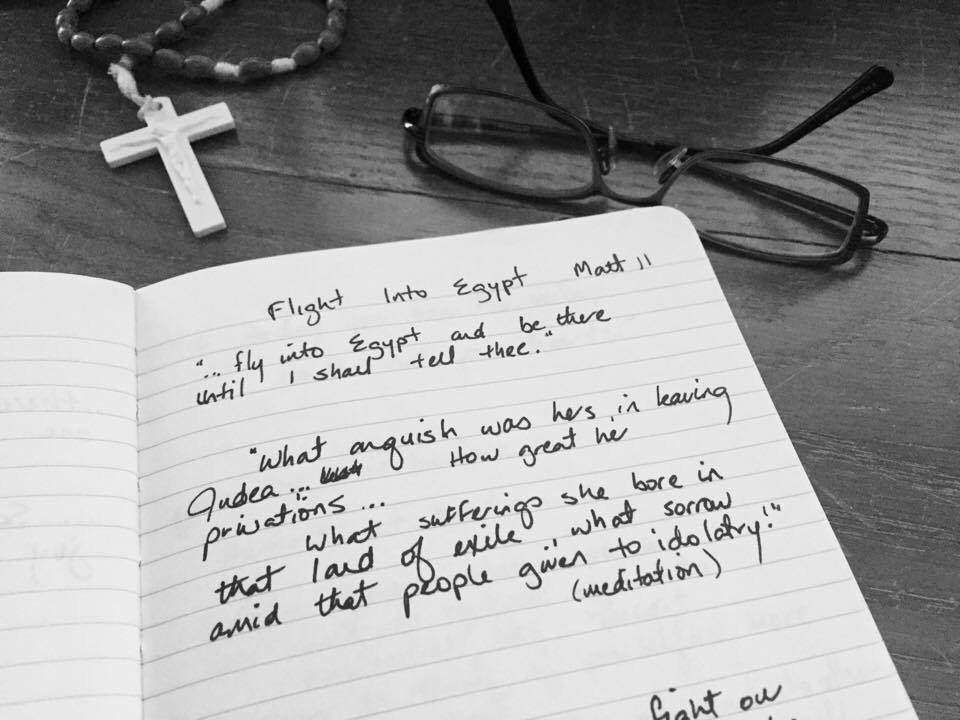 Flight Into Egypt Matt II
"... fly into Egypt and be there
until I shall tell thee."
"What anguish was hers in leaving
Judea... How great her
privations...
What sufferings she bore in
that land of exile, what sorrow
amid that people given to idolatry!"
(meditation)
fight our